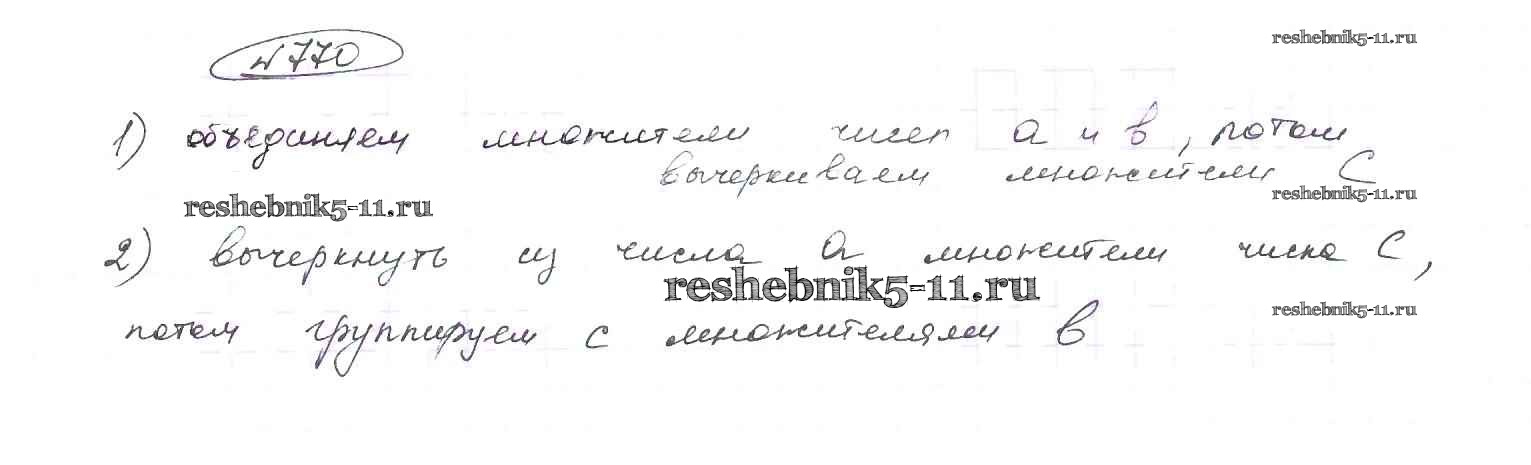 №770
reshebnik5-11.ru
1) объединяем множители чисел a и b, потом
вычеркиваем множители C
reshebnik5-11.ru
reshebnik5-11.ru
2) вычеркнуть из числа a множители числа C,
reshebnik5-11.ru
reshebnik5-11.ru
потом группируем с множителями b